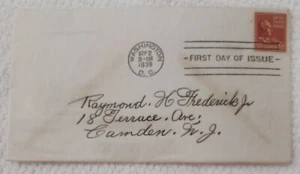 WASHINGTON
SEP 2
1938
D. C.
FIRST DAY OF ISSUE
Raymond. H Frederick Jr
18 Terrace. Ave;
Camden N. J.